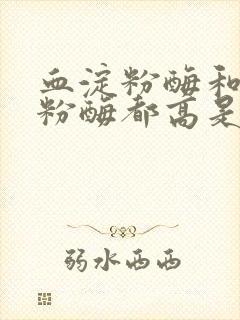 血淀粉酶和
粉酶都高是
弱水西西